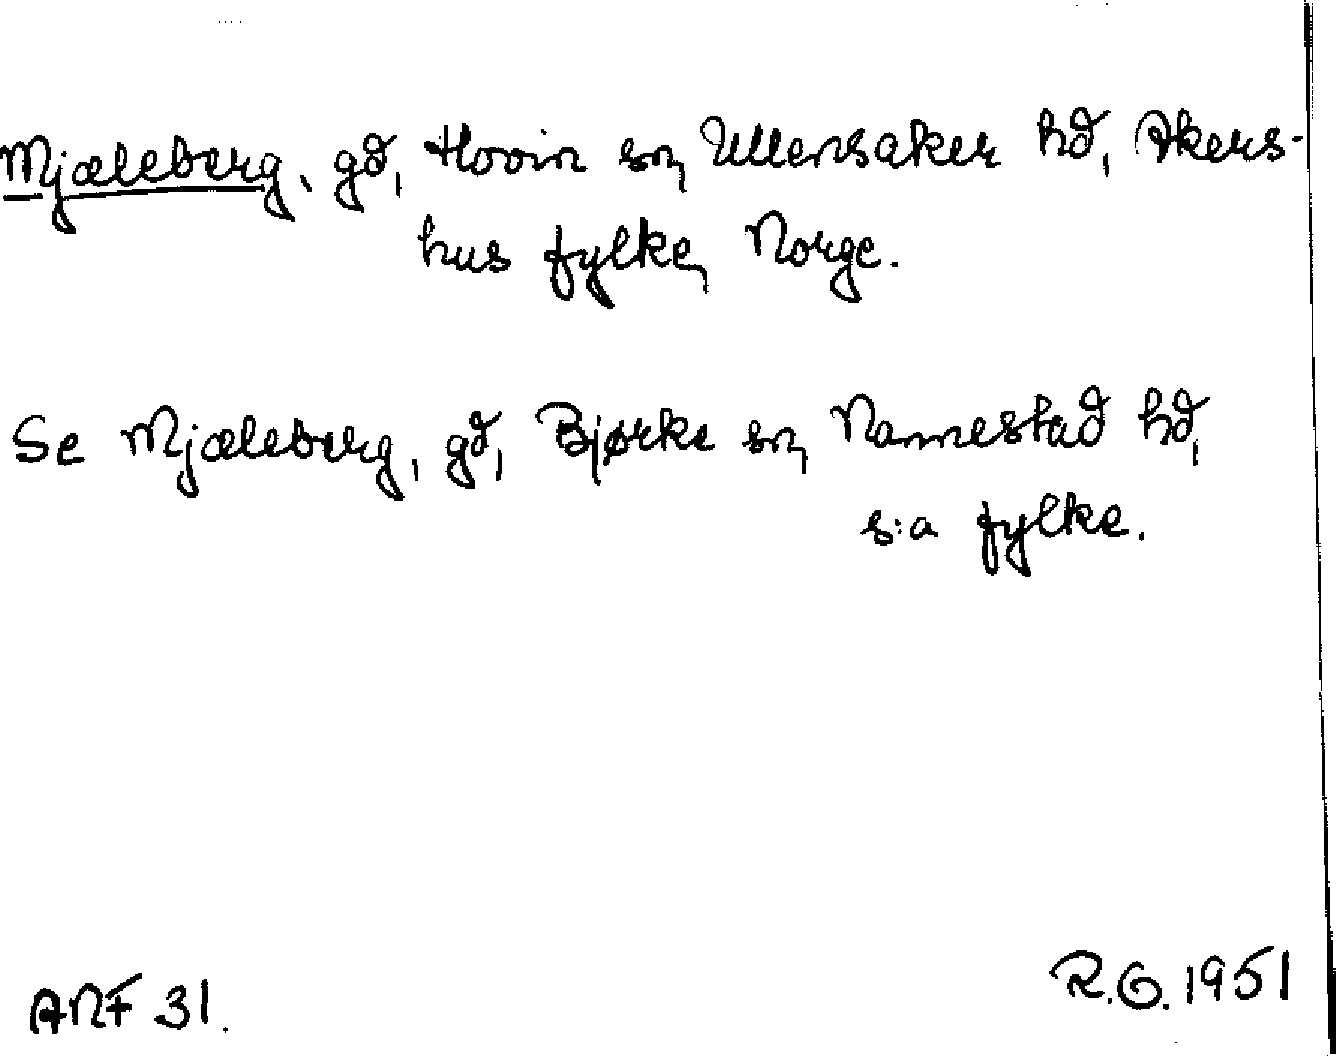 Mjæleberg, gd, Hovin sn, Ullensaker hd, Akers-
hus fylke, Norge.
Se Mjæleberg, gd, Bjørke sn, Nannestad hd,
s:a fylke.
ANF 31.
R.G. 1951